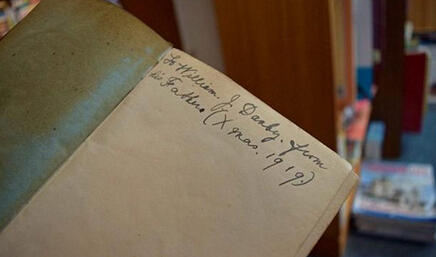 To William. J. Danby. from
his Father (Xmas. 1919)